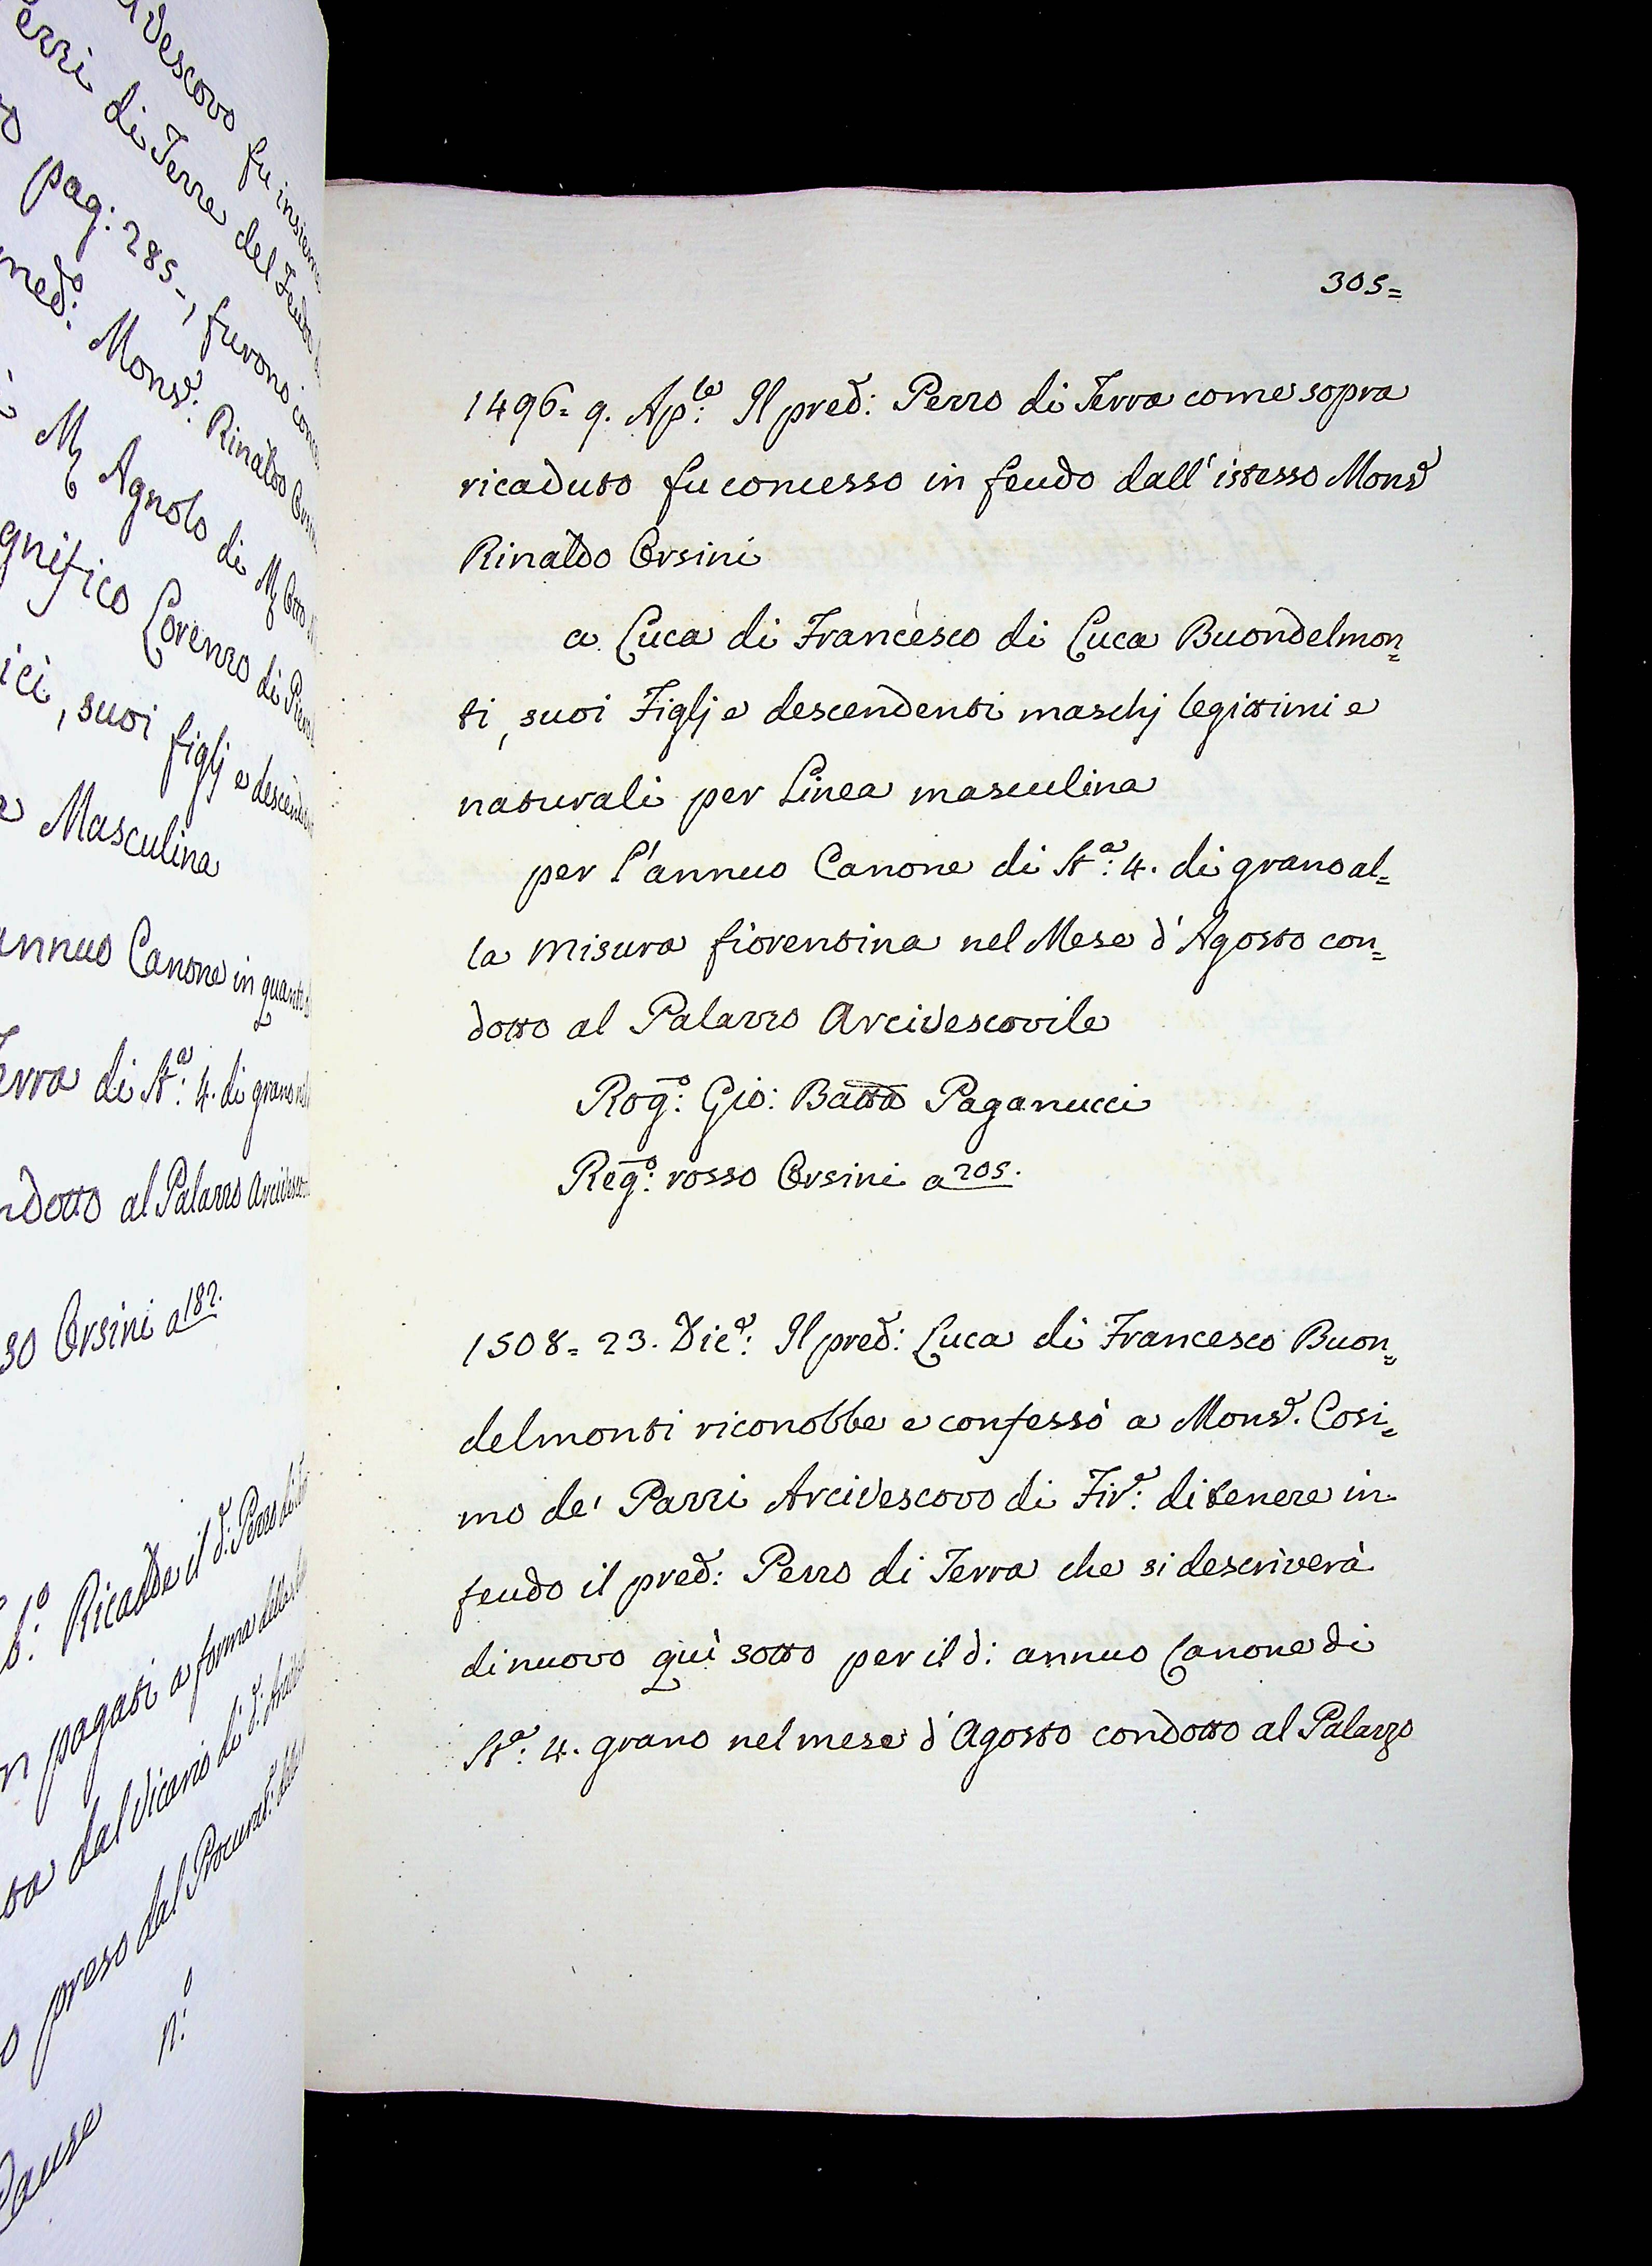 vescovo fu insieme
erri di Terra del Feudo
pag: 285-, furono
med:º Monsr: Rinaldo
M Agnolo di M
gnifico Lorenzo di
ici, suoi figlj e descend
e Masculina
annuo Canone in quanto
erra di Sta: 4. di grano
ndotto al Palazzo Arcivesco
so Orsini a 182.
Ricadde il d: Pezzo di
n pagati a forma
ta dal Vicario di d:
o preso dal
n:º
Cause
305=
1496= 9. Aple: Il pred: Pezzo di Terra come sopra
ricaduto fu concesso in feudo dall'istesso Monsr
Rinaldo Orsini
a Luca di Francesco di Luca Buondelmon=
ti, suoi Figlj e descendenti maschj legittimi e
naturali per Linea masculina
per l'annuo Canone di Sta: 4. di grano al=
la misura fiorentina nel Mese d'Agosto con=
dotto al Palazzo Arcivescovile
Rogº: Gio: Batta Paganucci
Regº: rosso Orsini a 205.
1508= 23. Dice: Il pred: Luca di Francesco Buon=
delmonti riconobbe e confessò a Monsr. Cosi=
mo de' Pazzi Arcivescovo di Fire: di tenere in
feudo il pred: Pezzo di Terra che si descriverà
di nuovo quì sotto per il d: annuo Canone di
Sta: 4. grano nel mese d'Agosto condotto al Palazzo